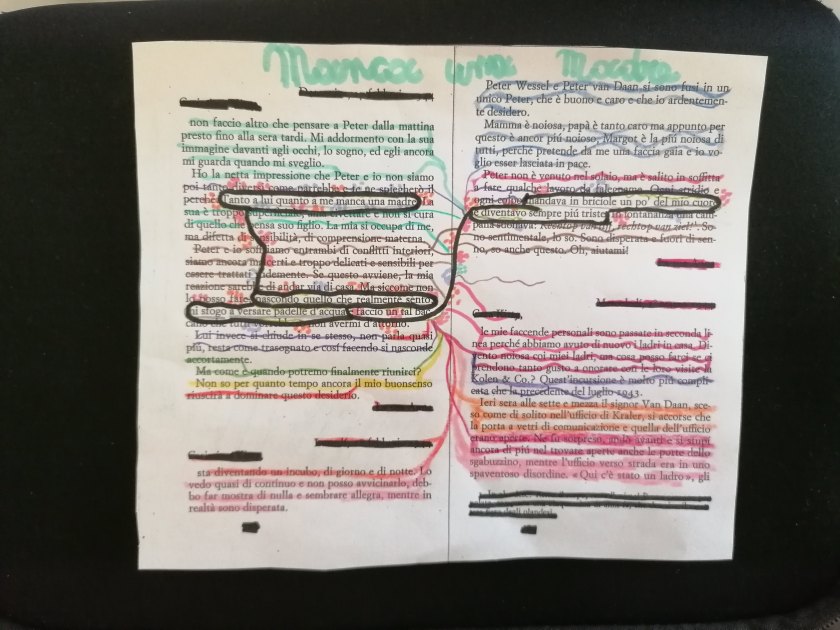 Manca una Madre
non faccio altro che pensare a Peter dalla mattina
presto fino alla sera tardi. Mi addormento con la sua
immagine davanti agli occhi, lo sogno, ed egli ancora
mi guarda quando mi sveglio.
Ho la netta impressione che Peter e io non siamo
poi tanto diversi come parrebbe e te ne spiegherò il
perché: tanto a lui quanto a me manca una madre. La
sua è troppo superficiale, ama civettare e non si cura
di quello che pensa suo figlio. La mia si occupa di me,
ma difetta di sensibilità, di comprensione materna.
Peter e io siamo entrambi di conflitti interiori,
siamo ancora incerti e troppo delicati e sensibili per
essere trattati rudemente. Se questo avviene, la mia
reazione sarebbe di andar via di casa. Ma siccome non
lo posso fare nascondo quello che realmente sento
mi sfogo a versare padelle d'acqua faccio un tal bac-
cano che tutti vorrebbero non avermi d'attorno.
Lui invece si chiude in se stesso, non parla quasi
più, resta come trasognato e così facendo si nasconde
accortamente.
Ma come e quando potremo finalmente riunirci?
Non so per quanto tempo ancora il mio buonsenso
riuscirà a dominare questo desiderio.
sta diventando un incubo, di giorno e di notte. Lo
vedo quasi di continuo e non posso avvicinarlo, deb-
bo far mostra di nulla e sembrare allegra, mentre in
realtà sono disperata.
Peter Wessel e Peter van Daan si sono fusi in un
unico Peter, che è buono e caro e che io ardentemen-
te desidero.
Mamma è noiosa, papà è tanto caro ma appunto per
questo è ancor più noioso. Margot è la più noiosa di
tutti, perché pretende da me una faccia gaia e io vo-
glio esser lasciata in pace.
Peter non è venuto nel solaio, ma è salito in soffitta
a fare qualche lavoro da falegname. Ogni stridio e
ogni colpo mandava in briciole un po' del mio cuore
e diventavo sempre più triste. In lontananza una cam-
pana suonava: So-
no sentimentale, lo so. Sono disperata e fuori di sen-
no, so anche questo. Oh, aiutami!
le mie faccende personali sono passate in seconda li-
nea perché abbiamo avuto di nuovo i ladri in casa. Di-
vento noiosa coi miei ladri, ma cosa posso farci se ci
prendono tanto gusto a onorare con le loro visite la
Kolen & Co.? Quest'incursione è molto più compli-
cata che la precedente del luglio 1943.
Ieri sera alle sette e mezza il signor Van Daan, sce-
so come di solito nell'ufficio di Kraler, si accorse che
la porta a vetri di comunicazione e quella dell'ufficio
erano aperte. Ne fu sorpreso, andò avanti e si stupì
ancora di più nel trovare aperte anche le porte dello
sgabuzzino, mentre l'ufficio verso strada era in uno
spaventoso disordine. «Qui c'è stato un ladro», gli